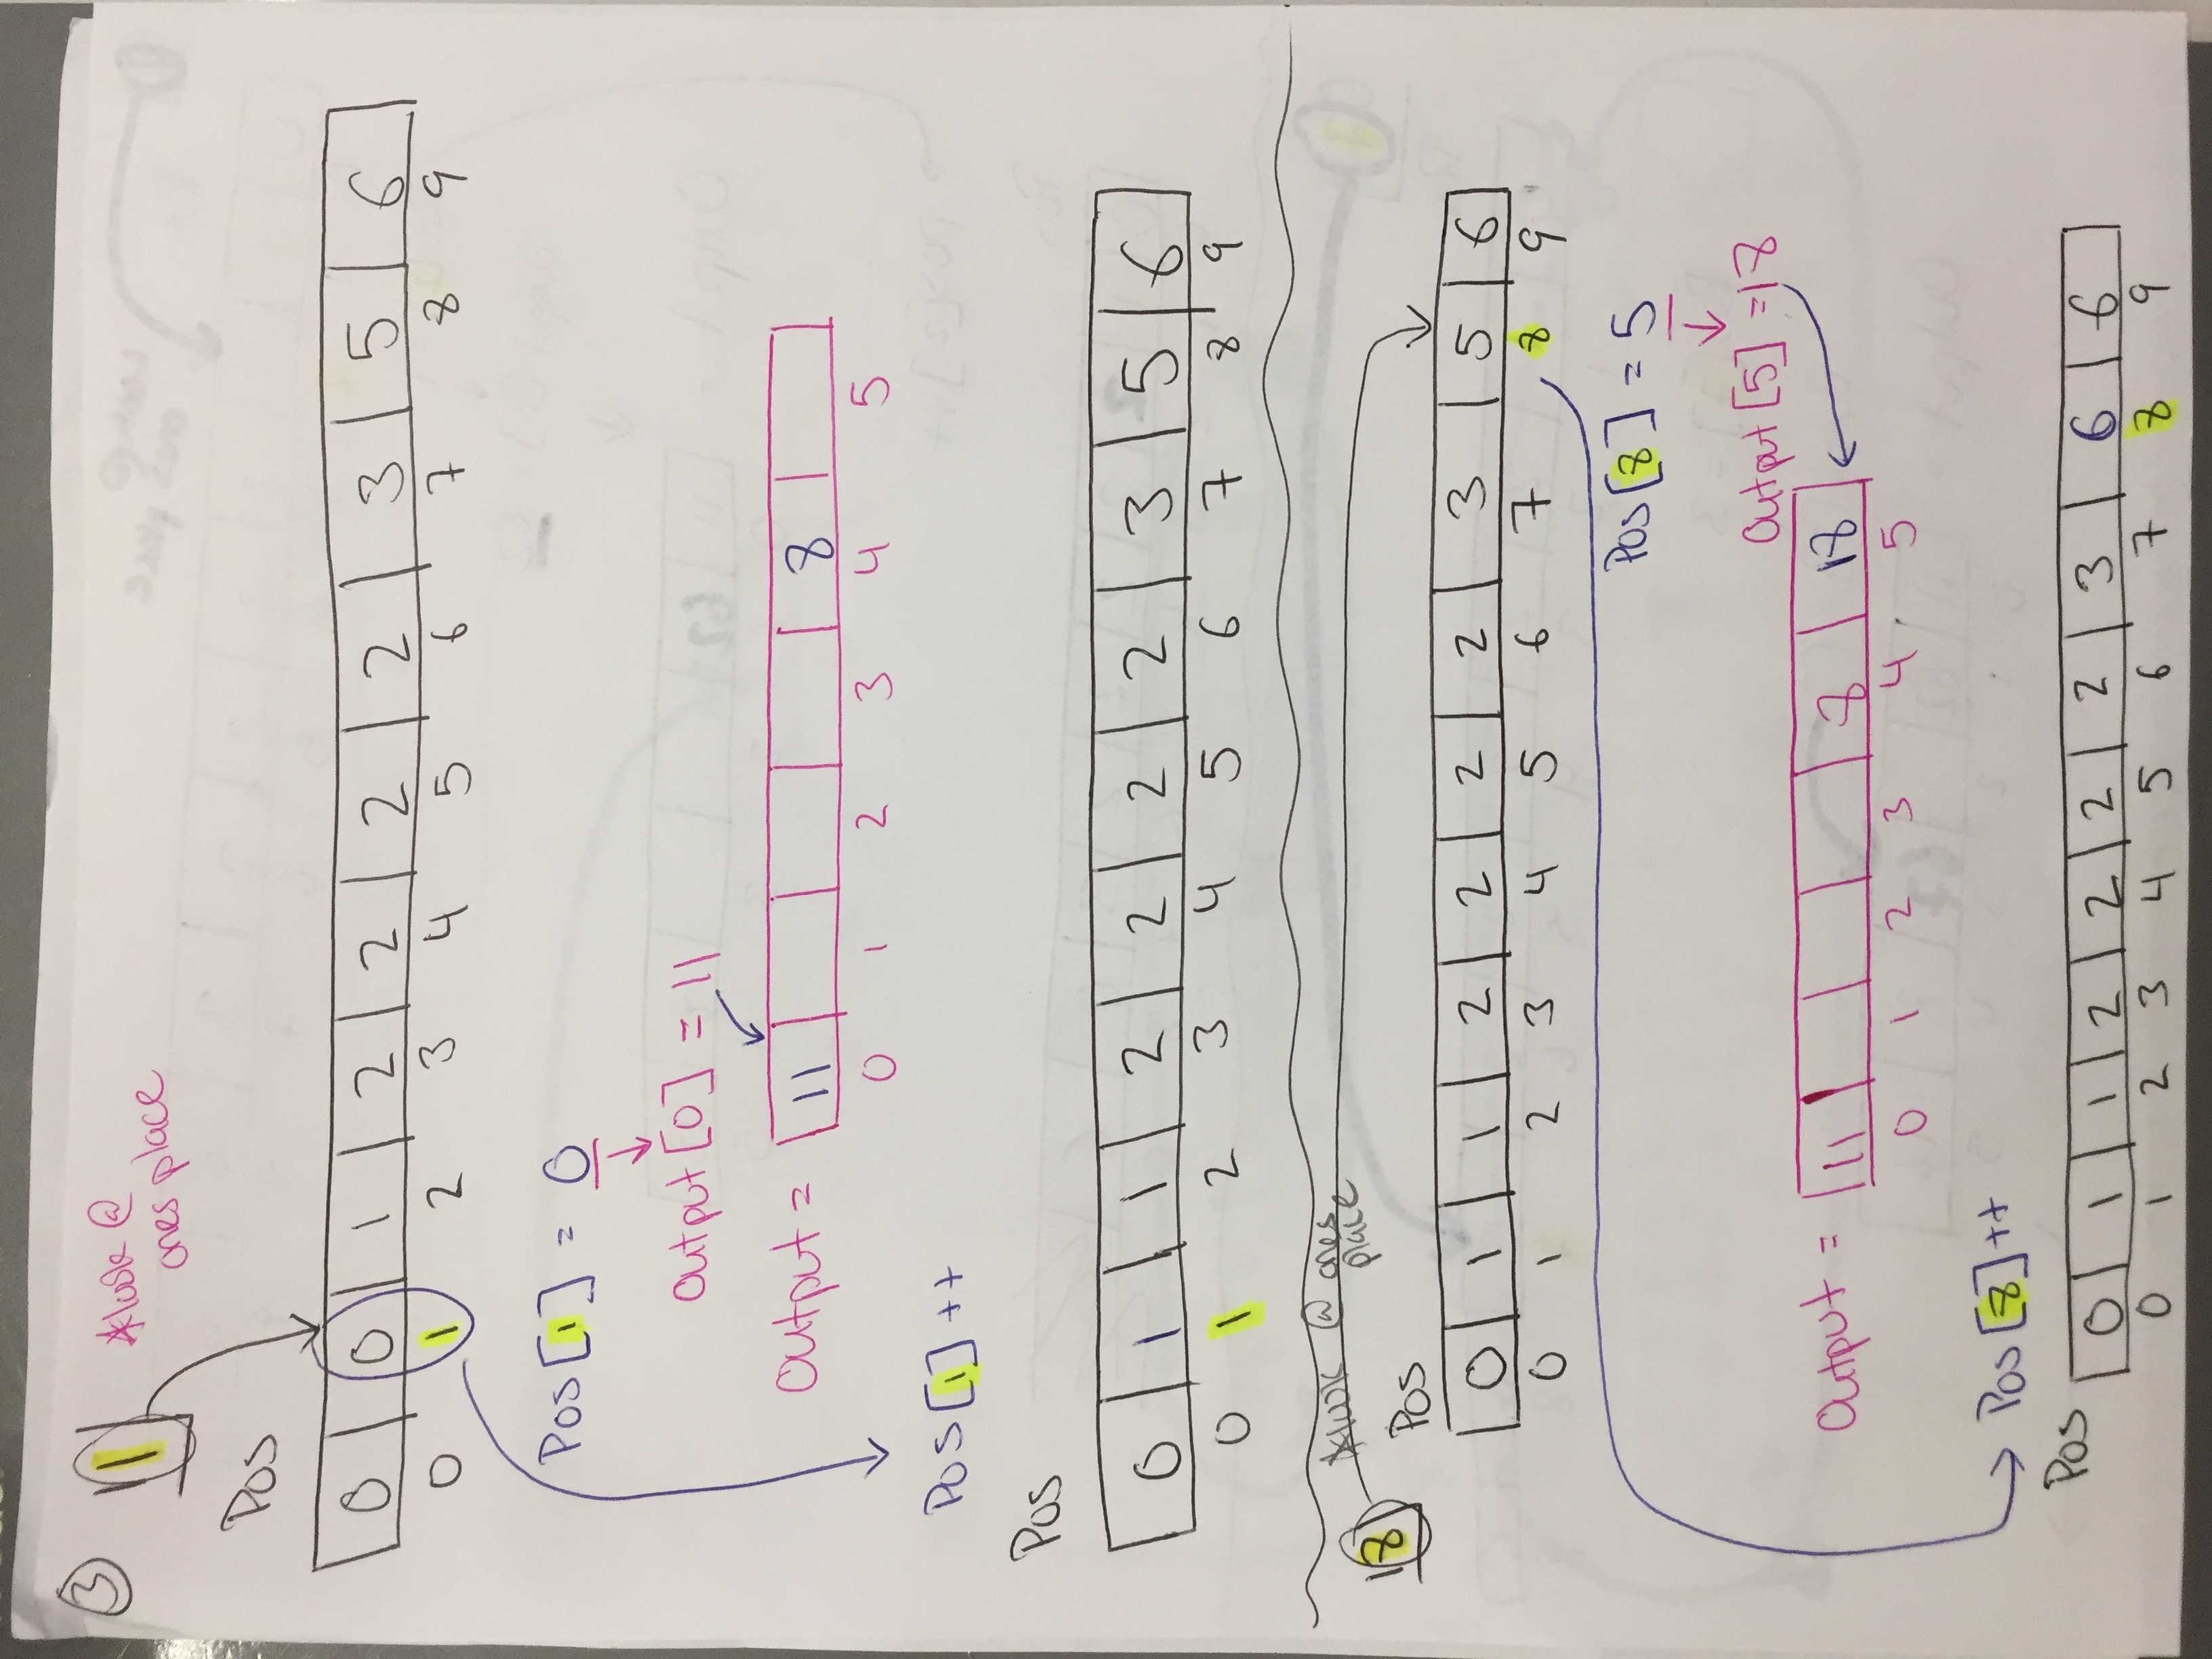 3
11
*look @
ones place
Pos
0 0 1 2 2 2 2 3 5 6
0 1 2 3 4 5 6 7 8 9
Pos[1] = 0
Output[0] = 11
Output = 11 8
0 1 2 3 4 5
Pos[1]++
Pos
0 1 1 2 2 2 2 3 5 6
0 1 2 3 4 5 6 7 8 9
*look @ ones
place
18
Pos
0 1 1 2 2 2 2 3 5 6
0 1 2 3 4 5 6 7 8 9
Pos[8] = 5
Output[5] = 18
Output = 11 8 18
0 1 2 3 4 5
Pos[8]++
Pos
0 1 1 2 2 2 2 3 6 6
0 1 2 3 4 5 6 7 8 9